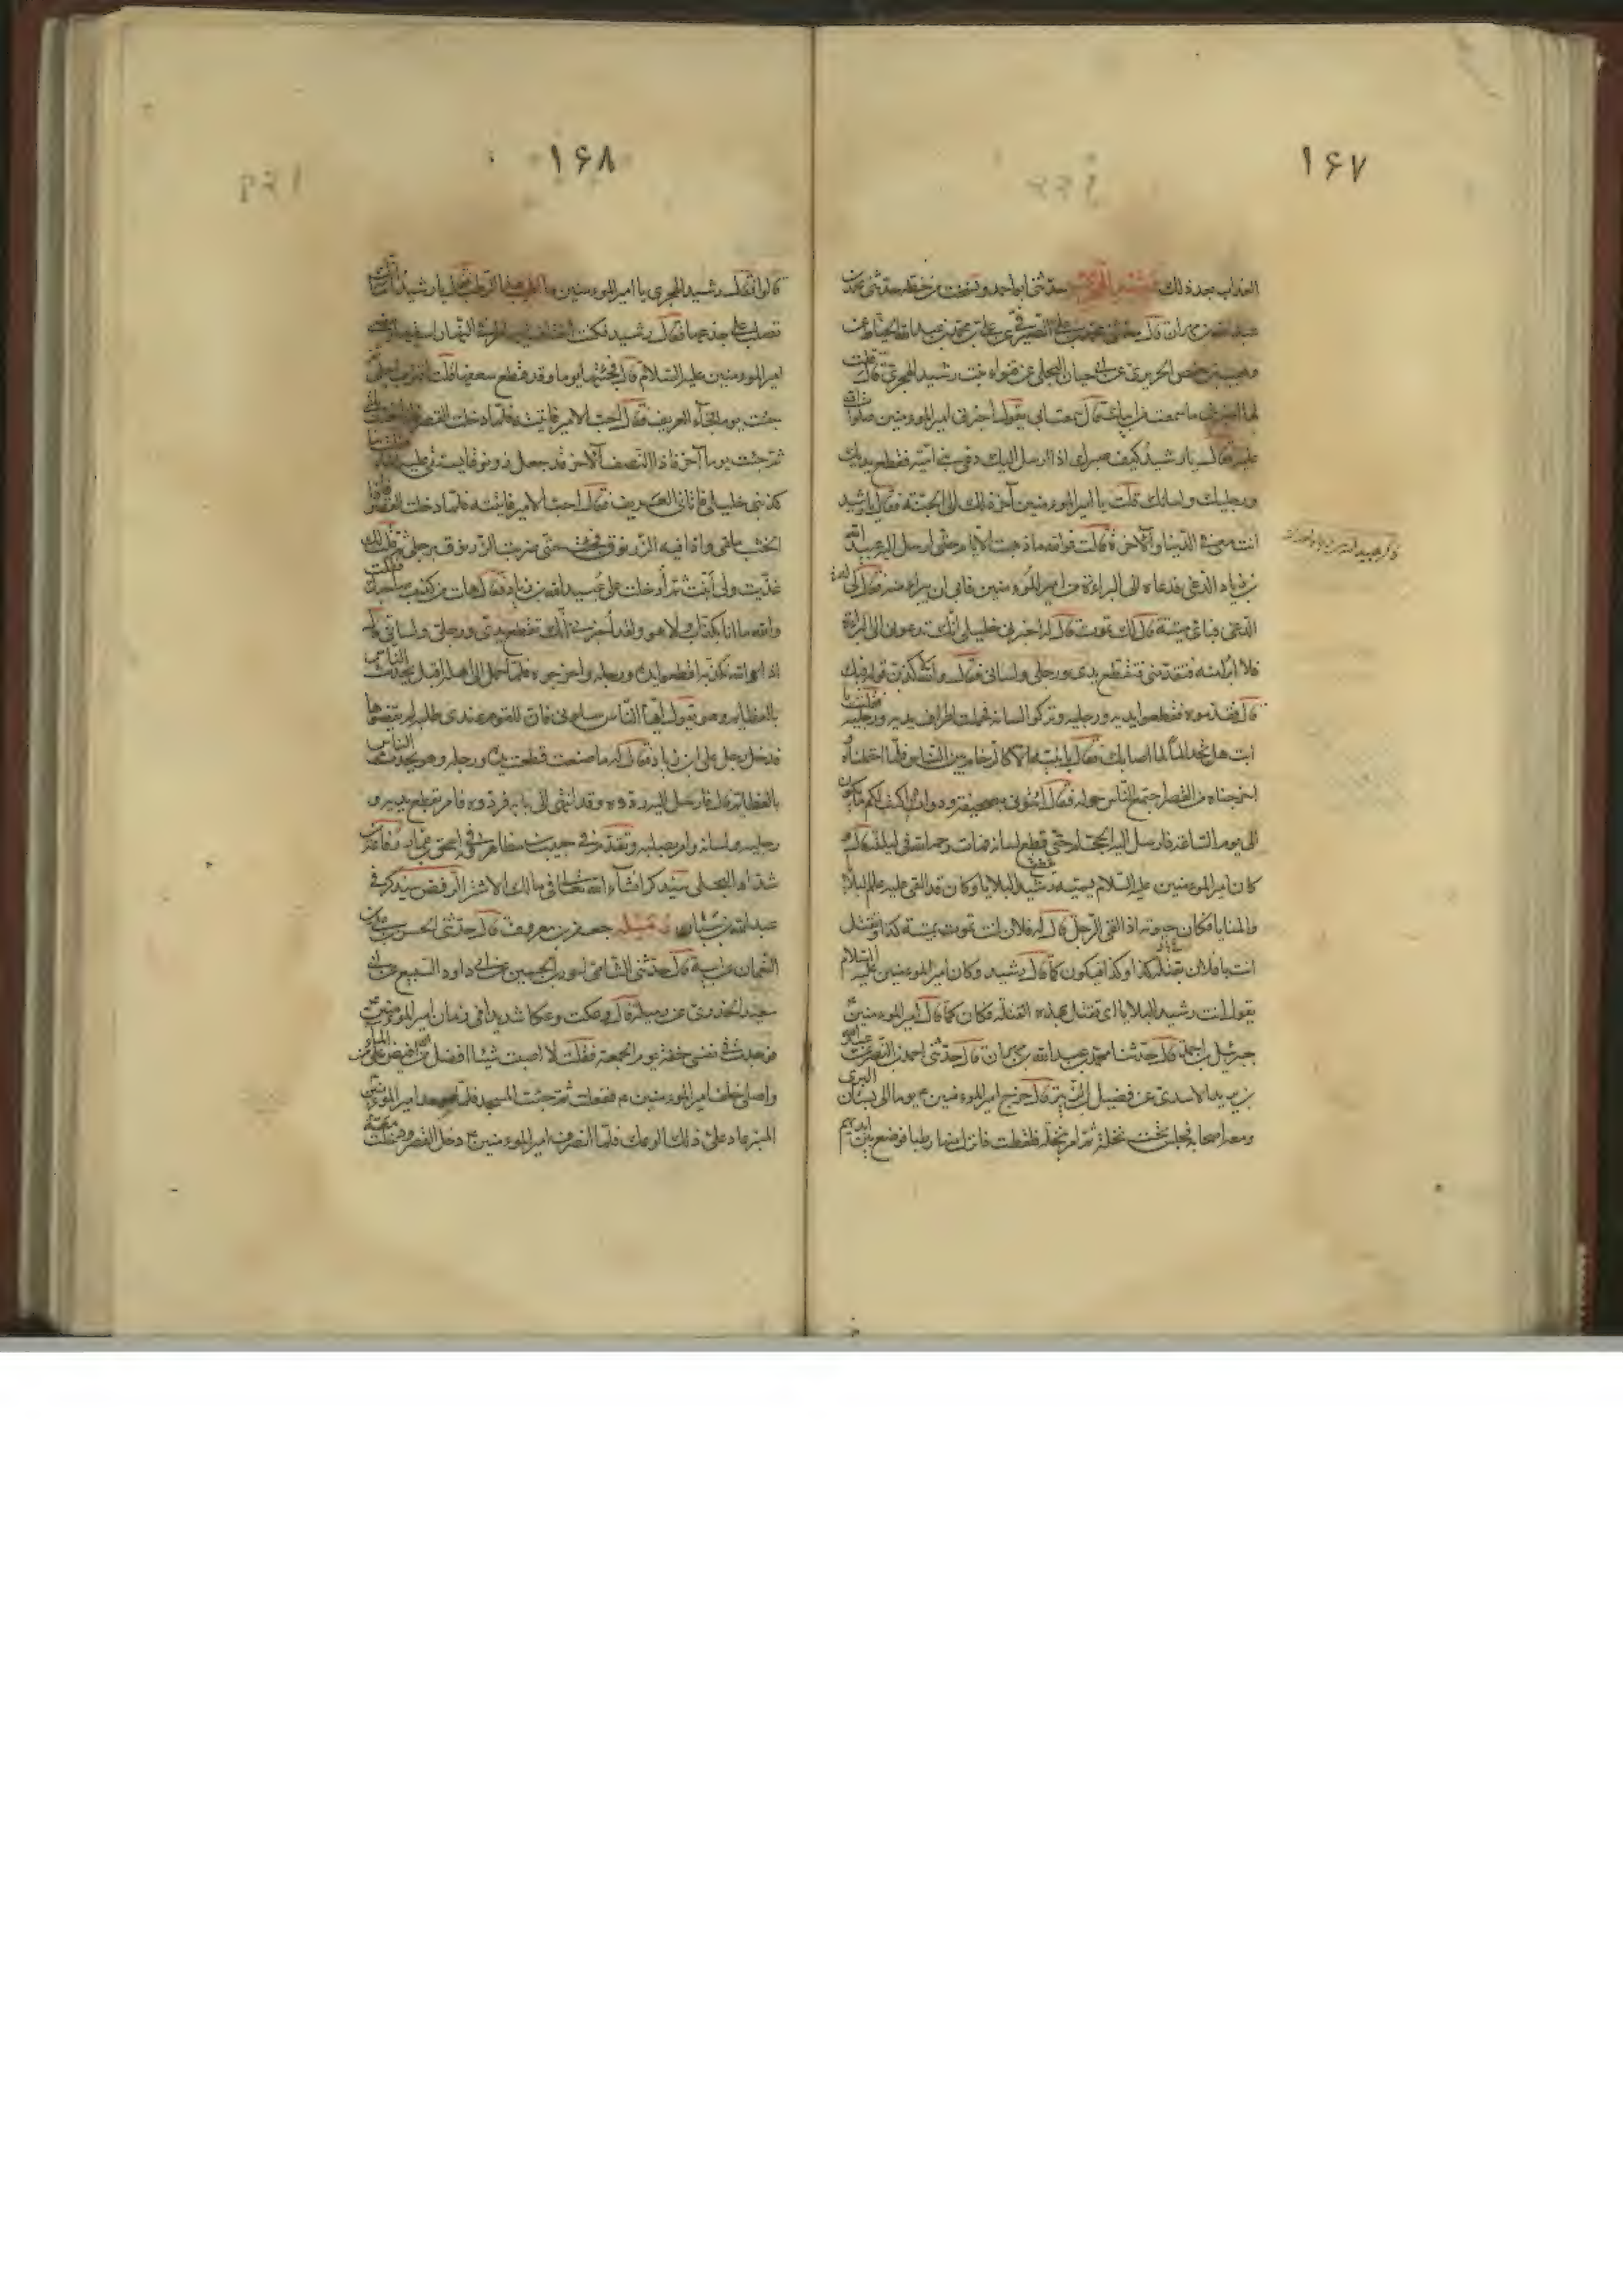 ۱۶۷
العذاب بعد ذلك رشيد الهجري حدثني ابو احمد ونسخت من خطه حدثني محمد بن
عبد الله بن مهران قال حدثني محمد بن علي الصيرفي عن علي بن محمد بن عبد الله الحناط عن
وهيب بن حفص الجريري عن ابي حيان البجلي عن قنواء بنت رشيد الهجري قال قلت
لها اخبريني ما سمعت من ابيك قالت سمعت ابي يقول اخبرني امير المؤمنين صلوات الله
عليه فقال يا رشيد كيف صبرك اذا ارسل اليك دعي بني امية فقطع يديك
ورجليك ولسانك قلت يا امير المؤمنين آخر ذلك الى الجنة فقال يا رشيد
انت معي في الدنيا والآخرة قالت فوالله ما ذهبت الايام حتى ارسل اليه عبيد الله
بن زياد الدعي فدعاه الى البراءة من امير المؤمنين فابى ان يبرأ منه فقال له
الدعي فباي ميتة قال لك تموت قال له اخبرني خليلي انك تدعوني الى البراءة
فلا ابرأ منه فتقدمني فتقطع يدي ورجلي ولساني فقال والله لاكذبن قوله فيك
قال فقدموه فقطعوا يديه ورجليه وتركوا لسانه فحملت اطراف يديه ورجليه فقلت يا
ابت هل تجد الما لما اصابك فقال لا يا بنية الا كالزحام بين الناس فلما احتملناه
اخرجناه من القصر اجتمع الناس حوله فقال ائتوني بصحيفة ودواة اكتب لكم ما يكون
الى يوم الساعة فارسل اليه الحجام حتى قطع لسانه فمات رحمة الله في ليلته قال
كان امير المؤمنين عليه السلام يسميه رشيد البلايا وكان قد القى عليه علم البلايا
والمنايا فكان حيوته اذا لقى الرجل قال له فلان انت تموت بميتة كذا وتقتل
انت يا فلان بقتلة كذا وكذا فيكون كما قال رشيد وكان امير المؤمنين عليه السلام
يقول انت رشيد البلايا اي تقتل بهذه القتلة فكان كما قال امير المؤمنين
جبرئيل بن احمد قال حدثنا محمد بن عبد الله بن مهران قال حدثني احمد بن النضر عن عبد الله
بن يزيد الاسدي عن فضيل بن الزبير قال خرج امير المؤمنين يوما الى بستان البرني
ومعه اصحابه فجلس تحت نخلة ثم امر بنخلة فلقطت فانزل منها رطبا فوضع بين ايديهم
۱۶۸
قالوا فقال رشيد الهجري يا امير المؤمنين ما اطيب هذا الرطب فقال يا رشيد اما انك
تصلب على جذعها فقال رشيد فكنت اختلف اليها طرفي النهار اسقيها ومضى
امير المؤمنين عليه السلام قال فجئتها يوما وقد قطع سعفها قلت اقترب اجلي
جئت يوما فجاء العريف فقال اجب الامير فاتيته فلما دخلت القصر فاذا خشب ملقى
ثم جئت يوما آخر فاذا النصف الآخر قد جعل زرنوقا يستقى عليه الماء فقلت ما
كذبني خليلي فاتاني العريف فقال اجب الامير فاتيته فلما دخلت القصر اذا
الخشب ملقى واذا فيه الزرنوق فجئت حتى ضربت الزرنوق برجلي ثم قلت لك
غذيت ولي انبت ثم ادخلت على عبيد الله بن زياد فقال هات من كذب صاحبك فقلت
والله ما انا بكذاب ولا هو ولقد اخبرني انك تقطع يدي ورجلي ولساني قال
اذا والله نكذبه اقطعوا يده ورجله واخرجوه فلما حمل الى اهله اقبل يحدث الناس
بالعظايم وهو يقول ايها الناس سلوني فان للقوم عندي طلبة لم يقضوها
فدخل رجل على ابن زياد فقال له ما صنعت قطعت يده ورجله وهو يحدث الناس
بالعظايم قال فارسل اليه ردوه وقد انتهى الى بابه فردوه فامر بقطع يديه و
رجليه ولسانه وامر بصلبه وتقدم في حبيب بن مظاهر
شداد البجلي سيذكر انشاء الله تعالى في مالك الاشتر الرفض سيذكر في
عبد الله بن سبا رميلة جعفر بن معروف قال حدثني الحسن بن علي بن
النعمان عن ابيه قال حدثني الشامي احور بن الحسين عن ابي داود السبيعي عن ابي
سعيد الخدري عن رميلة قال وعكت وعكا شديدا في زمان امير المؤمنين
فوجدت في نفسي خفة يوم الجمعة فقلت لا اصيب شيئا افضل من ان افيض علي من الماء
واصلي خلف امير المؤمنين ففعلت ثم جئت المسجد فلما صعد امير المؤمنين
المنبر عاد علي ذلك الوعك فلما انصرف امير المؤمنين دخل القصر ودخلت معه